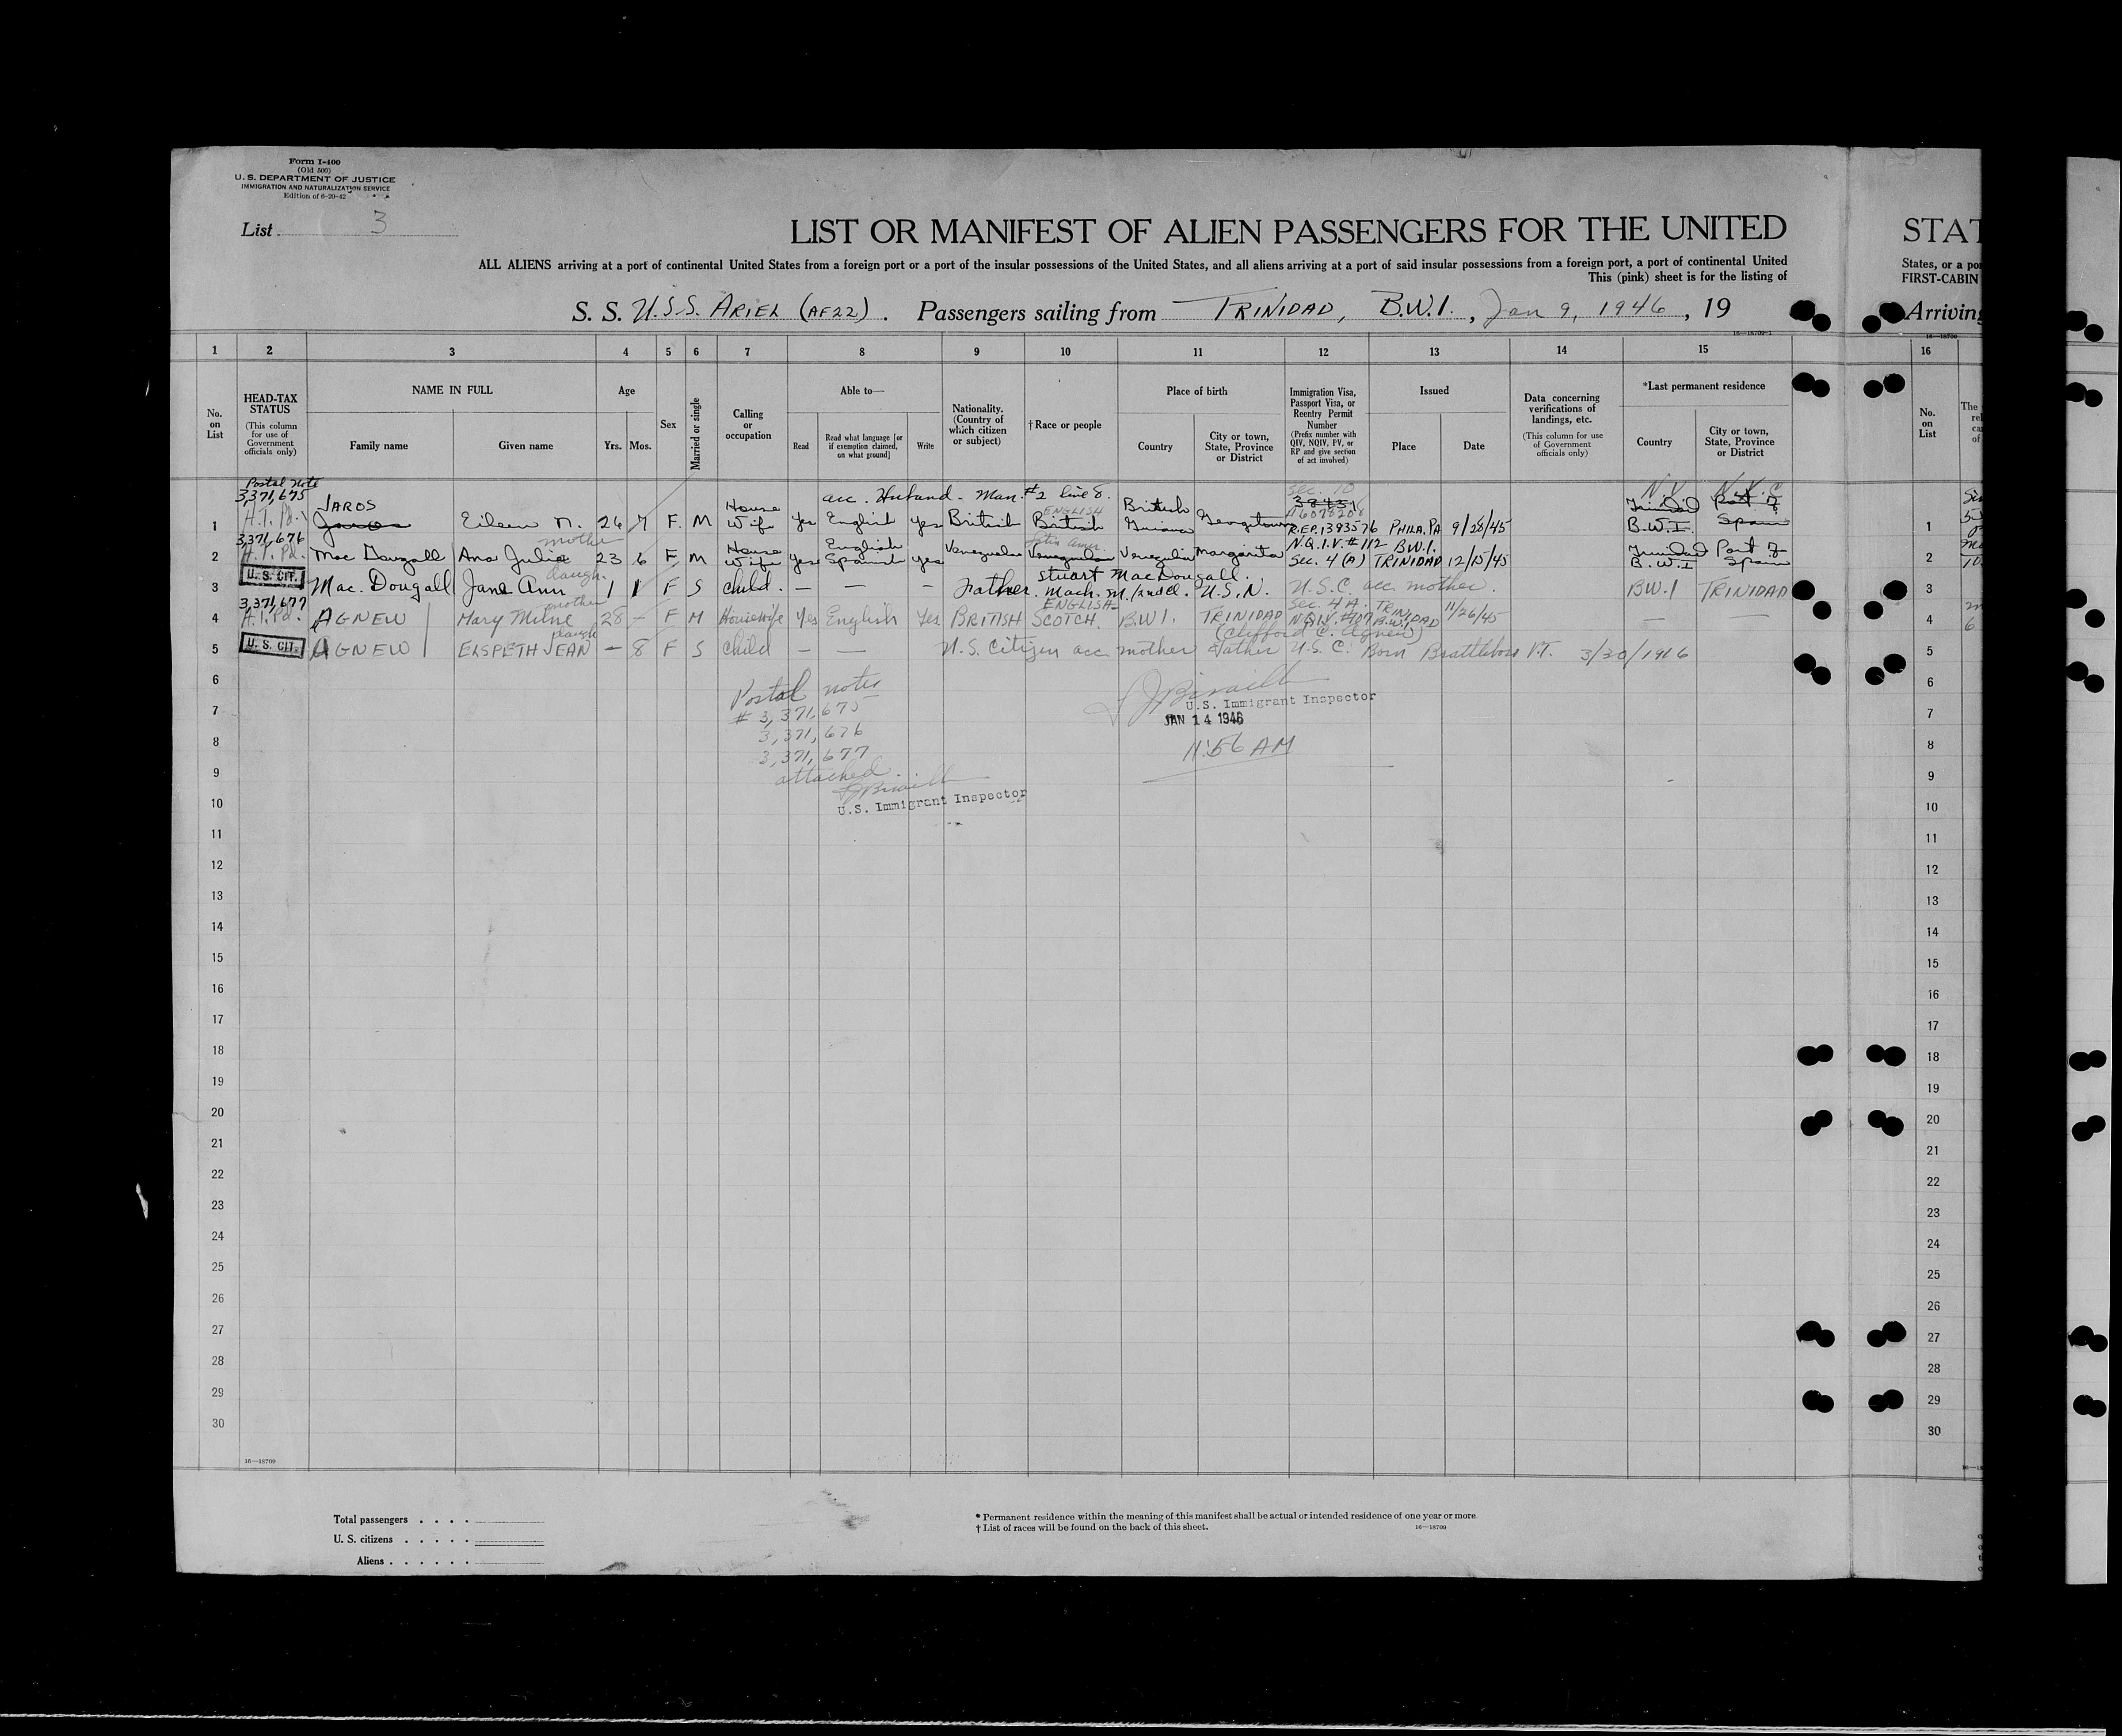 Form I-400
(Old 500)
U. S. DEPARTMENT OF JUSTICE
IMMIGRATION AND NATURALIZATION SERVICE
Edition of 6-20-42
List 3
LIST OR MANIFEST OF ALIEN PASSENGERS FOR THE UNITED
STAT
ALL ALIENS arriving at a port of continental United States from a foreign port or a port of the insular possessions of the United States, and all aliens arriving at a port of said insular possessions from a foreign port, a port of continental United
States, or a po
This (pink) sheet is for the listing of
FIRST-CABIN
S. S. U.S.S. ARIEL (AF22). Passengers sailing from TRINIDAD, B.W.I., Jan 9, 1946, 19
Arriving
16—18709-1
16—18709
1 2 3 4 5 6 7 8 9 10 11 12 13 14 15 16
No. on List
HEAD-TAX STATUS
(This column for use of Government officials only)
NAME IN FULL
Family name
Given name
Age
Yrs. Mos.
Sex
Married or single
Calling or occupation
Able to—
Read
Read what language [or if exemption claimed, on what ground]
Write
Nationality. (Country of which citizen or subject)
†Race or people
Place of birth
Country
City or town, State, Province or District
Immigration Visa, Passport Visa, or Reentry Permit Number
(Prefix number with QIV, NQIV, PV, or RP and give section of act involved)
Issued
Place
Date
Data concerning verifications of landings, etc.
(This column for use of Government officials only)
*Last permanent residence
Country
City or town, State, Province or District
No. on List
Postal Note
3,371,675 JAROS acc. Husband - Man. #2 line 8. Sec. 10 N.Y. N.Y.C
1 H.T. Pd. Jaros Eileen N. 26 7 F. M House Wife Yes English Yes British ENGLISH British British Guiana Georgetown 38431 A6078208 R.E.P. 1393576 PHILA, PA 9/28/45 Trinidad B.W.I. Port of Spain 1
3,371,676 mother
2 H.T. Pd. Mac Dougall Ana Julia 23 6 F M House Wife Yes English Spanish yes Venezuelan Latin Amer. Venezuelan Venezuela Margarita N.Q.I.V. #112 Sec. 4 (A) B.W.I. TRINIDAD 12/15/45 Trinidad B.W.I Port of Spain 2
U. S. CIT. daugh.
3 Mac. Dougall Jane Ann 1 1 F S child. — — — Father. Stuart MacDougall. Mach. M. /2nd cl. U.S.N. U.S.C. acc. mother. B.W.I TRINIDAD 3
3,371,677 mother
4 H.T. Pd. AGNEW Mary Milne 28 — F M Housewife Yes English Yes BRITISH ENGLISH SCOTCH. B.W.I. TRINIDAD Sec. 4 A. N.Q.I.V. #107 TRINIDAD B.W.I. 11/26/45 — — 4
(Clifford C. Agnew)
U. S. CIT. daugh
5 AGNEW ELSPETH JEAN — 8 F S Child — — U.S. Citizen acc mother father U.S.C. Born Brattleboro VT. 3/30/1916 5
6 6
7 7
8 8
9 9
10 10
Postal notes
# 3,371,675
3,371,676
3,371,677
attached
U.S. Immigrant Inspector
U.S. Immigrant Inspector
JAN 14 1946
11:56 AM
11 11
12 12
13 13
14 14
15 15
16 16
17 17
18 18
19 19
20 20
21 21
22 22
23 23
24 24
25 25
26 26
27 27
28 28
29 29
30 30
16—18709
Total passengers . . . .
U. S. citizens . . . . .
Aliens . . . . . .
* Permanent residence within the meaning of this manifest shall be actual or intended residence of one year or more.
† List of races will be found on the back of this sheet.
16—18709